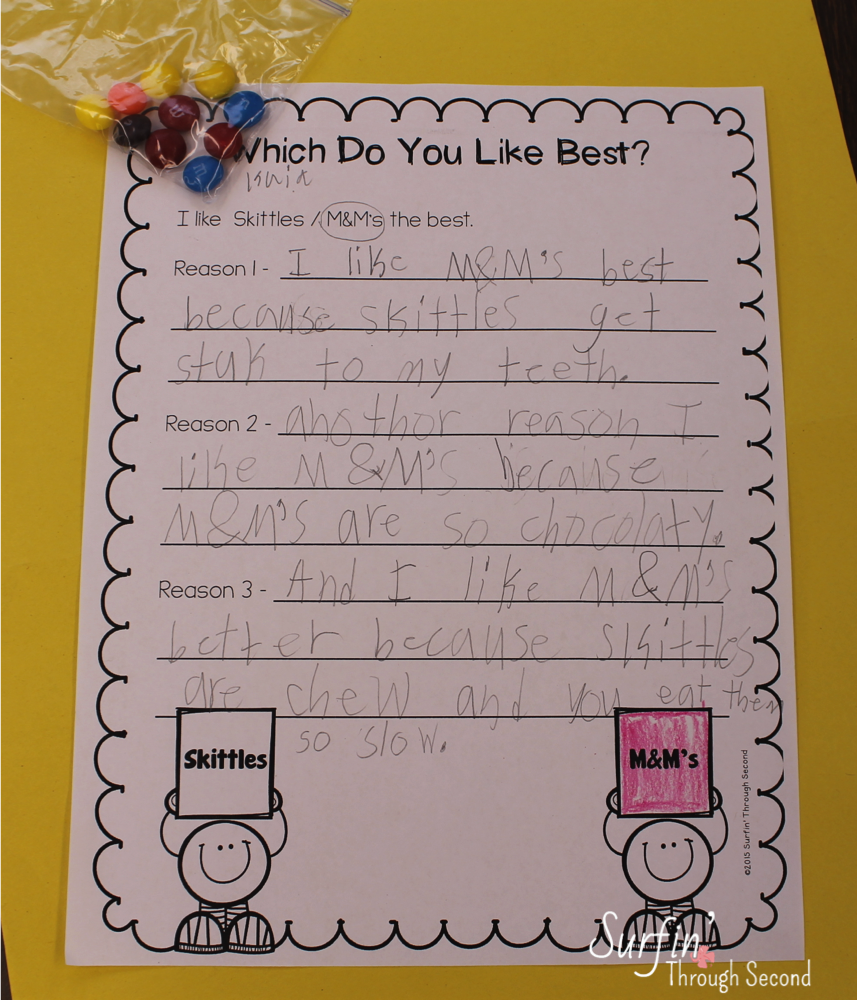 Which Do You Like Best?
I like Skittles / M&M's the best.
Reason 1 - I like M&M's best
because skittles get
stuk to my teeth.
Reason 2 - anothor reason I
like M&M's because
M&M's are so chocolaty.
Reason 3 - And I like M&M's
better because skittles
are chew and you eat them
so slow.
Skittles
M&M's
©2015 Surfin' Through Second
Surfin'
Through Second